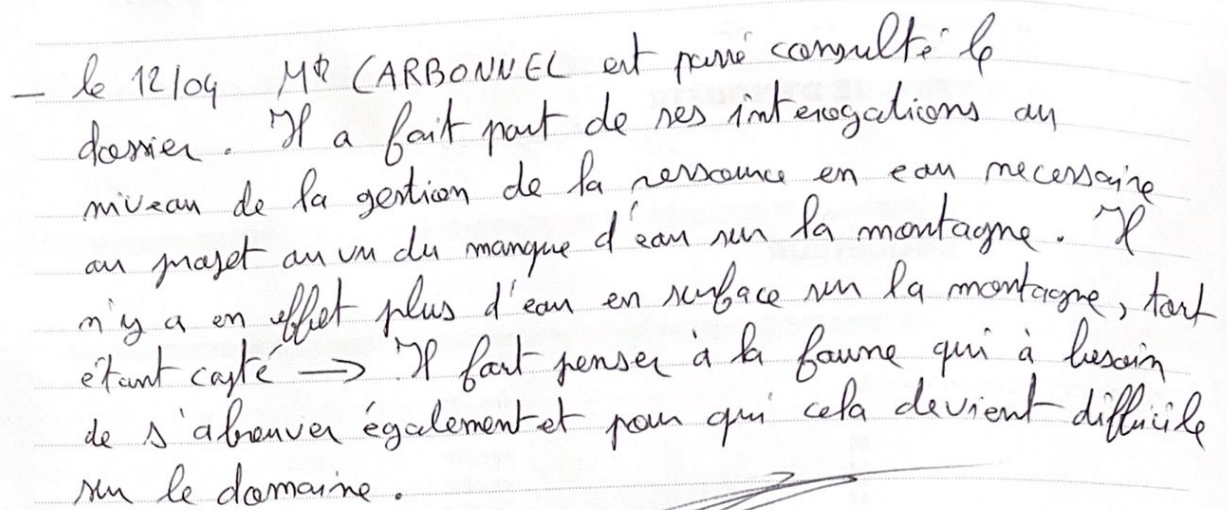 - le 12/04 Mr CARBONNEL est passé consulté le
dossier. Il a fait part de ses interogations au
niveau de la gestion de la ressource en eau necessaire
au projet au vu du manque d'eau sur la montagne. Il
n'y a en effet plus d'eau en surface sur la montagne, tout
étant capté → Il faut penser à la faune qui à besoin
de s'abreuver également et pour qui cela devient difficile
sur le domaine.